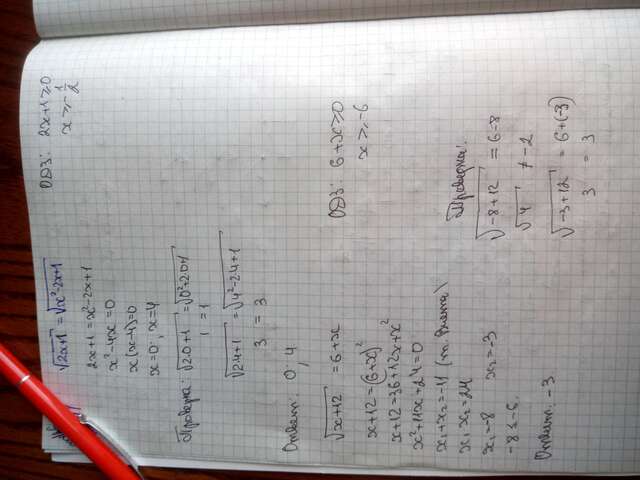 √2x+1 = √x²-2x+1
ОДЗ: 2x+1≥0
2x+1 = x²-2x+1
x ≥ -1/2
x²-4x=0
x(x-4)=0
x=0; x=4
Проверка: √2·0+1 = √0²-2·0+1
1 = 1
√2·4+1 = √4²-2·4+1
3 = 3
Ответ: 0, 4
√x+12 = 6+x
ОДЗ: 6+x≥0
x+12 = (6+x)²
x≥-6
x+12=36+12x+x²
x²+11x+24=0
x₁+x₂=-11 (т. Виета)
x₁·x₂=24
x₁=-8 x₂=-3
-8<-6
Проверка:
√-8+12 = 6-8
√4 ≠ -2
√-3+12 = 6+(-3)
3 = 3
Ответ: -3